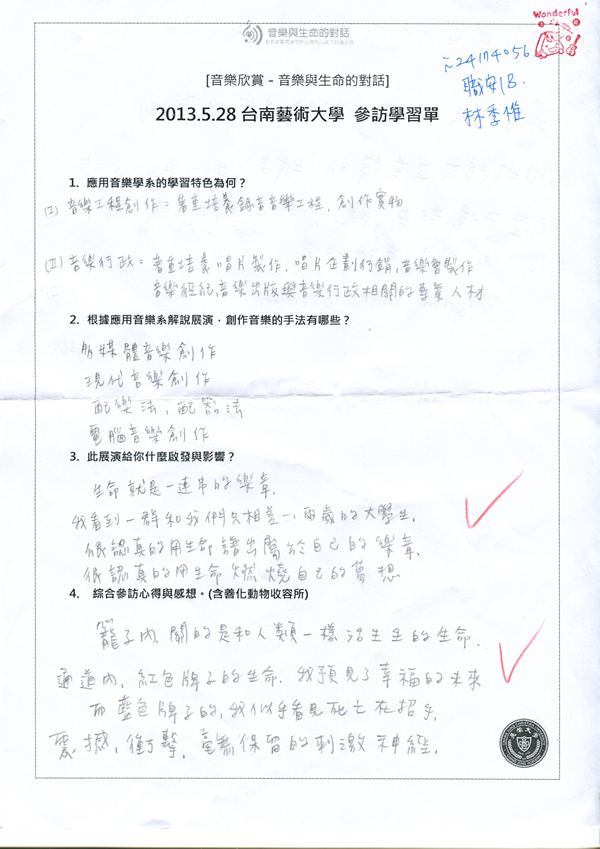 音樂與生命的對話
Wonderful
[音樂欣賞 - 音樂與生命的對話]
i24174056
職安1B
林季惟
2013.5.28 台南藝術大學 參訪學習單
1. 應用音樂學系的學習特色為何？
(I) 音樂工程創作：著重培養錄音音樂工程、創作實物
(II) 音樂行政：著重培養唱片製作、唱片企劃行銷、音樂會製作
音樂經紀、音樂出版與音樂行政相關的專業人材
2. 根據應用音樂系解說展演，創作音樂的手法有哪些？
多媒體音樂創作
現代音樂創作
配樂法，配器法
電腦音樂創作
3. 此展演給你什麼啟發與影響？
生命就是一連串的樂章，
我看到一群和我們只相差一、兩歲的大學生，
很認真的用生命譜出屬於自己的樂章，
很認真的用生命燃燒自己的夢想
4. 綜合參訪心得與感想。(含善化動物收容所)
籠子內，關的是和人類一樣活生生的生命，
通道內，紅色牌子的生命，我預見了幸福的未來
而藍色牌子的，我似乎看見死亡在招手，
震撼、衝擊，毫無保留的刺激神經，